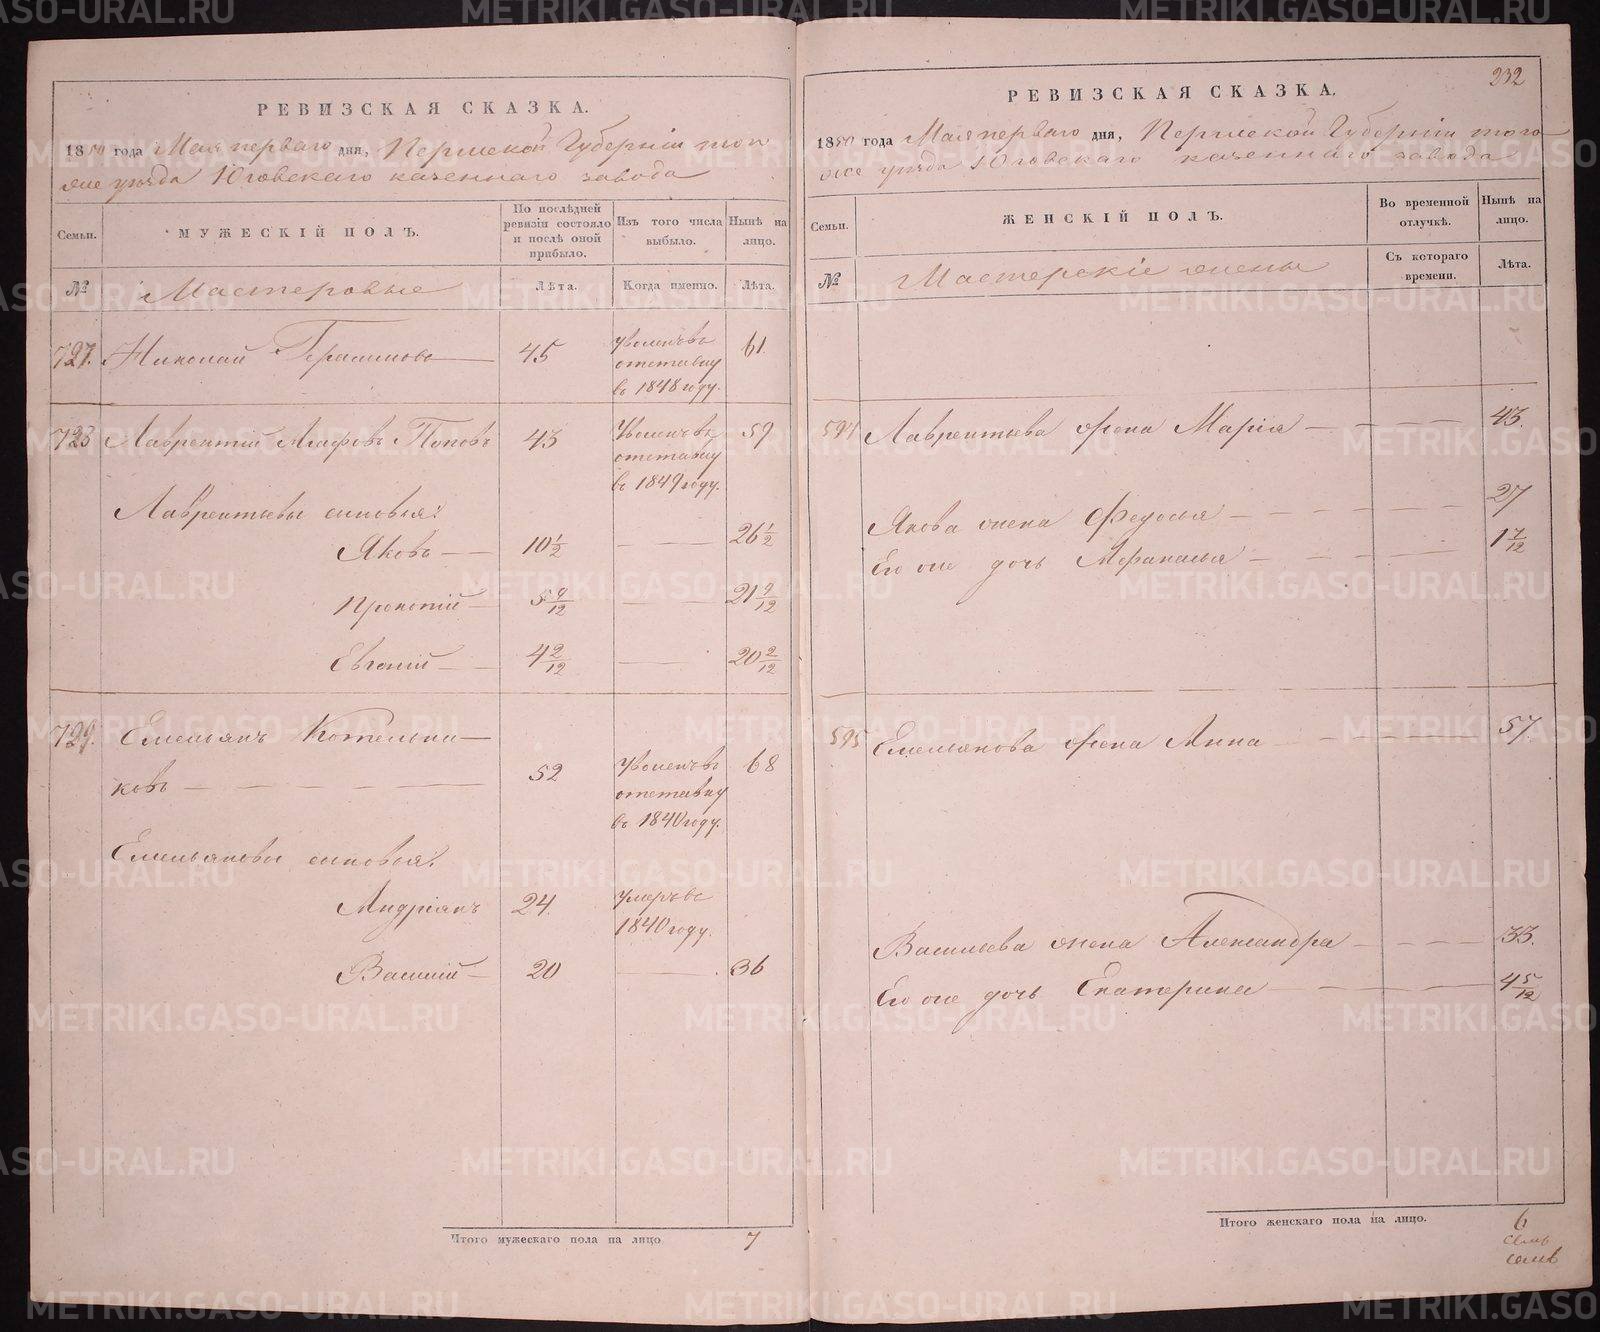 РЕВИЗСКАЯ СКАЗКА.
1850 года Мая перваго дня, Пермской Губерніи того
же уѣзда Юговскаго казеннаго завода
Семьи. МУЖЕСКІЙ ПОЛЪ. По послѣдней ревизіи состояло и послѣ оной прибыло. Изъ того числа выбыло. Нынѣ на лицо.
№ Мастеровые Лѣта. Когда именно. Лѣта.
727. Николай Герасимовъ 45 Уволенъ въ отставку въ 1848 году. 61.
728 Лаврентій Агафовъ Поповъ 43 Уволенъ въ отставку въ 1849 году. 59
Лаврентьевы сыновья:
Яковъ 10 1/2 26 1/2
Прокопій 5 9/12 21 9/12
Евгеній 4 2/12 20 2/12
729. Емельянъ Котельни-
ковъ 52 Уволенъ въ отставку въ 1840 году. 68
Емельяновы сыновья:
Андріянъ 24. Умеръ въ 1840 году.
Василій 20 36
Итого мужескаго пола на лицо 7
232
РЕВИЗСКАЯ СКАЗКА.
1850 года Мая перваго дня, Пермской Губерніи того
же уѣзда Юговскаго казеннаго завода
Семьи. ЖЕНСКІЙ ПОЛЪ. Во временной отлучкѣ. Нынѣ на лицо.
№ Мастерскіе жены Съ котораго времени. Лѣта.
594 Лаврентьева жена Марія 43.
Якова жена Федосья 27
Его же дочь Афанасья 1 7/12
595 Емельянова жена Анна 57.
Васильева жена Александра 33.
Его же дочь Екатерина 4 5/12
Итого женскаго пола на лицо. 6
METRIKI.GASO-URAL.RU